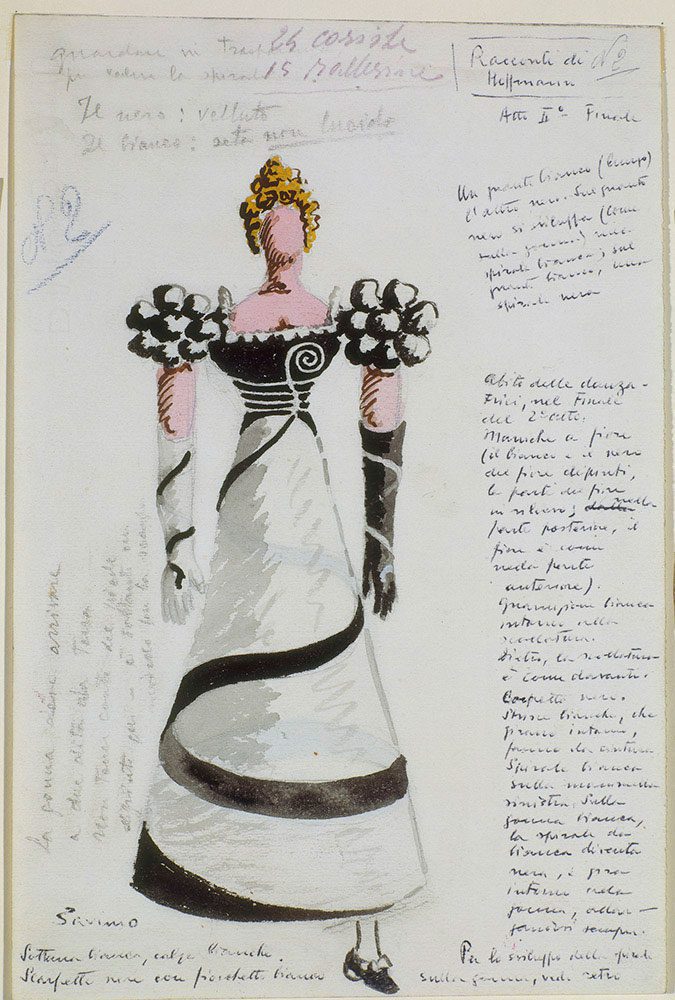 guardare in
24 coriste
15 ballerine
per la spirale
Il nero: velluto
Il bianco: seta non lucida
Racconti di
Hoffmann
No 2
Atto IIº Finale
No 2
Un guanto bianco (lungo)
l'altro nero. Sul guanto
nero si sviluppa (come
sulla gonna) una
spirale bianca; sul
guanto bianco, una
spirale nera
Abito delle danza-
trici, nel Finale
del 2º atto.
Maniche a fiori
(il bianco e il nero
dei fiori dipinti,
le parti dei fiori
in rilievo; nella
parte posteriore, il
fiore è come
nella parte
anteriore).
Guarnizione bianca
intorno alla
scollatura.
Dietro, la scollatura
è come davanti.
Corpetto nero.
Strisce bianche, che
girano intorno,
fanno da cintura
Spirale bianca
sulla mammella
sinistra. Sulla
gonna bianca,
la spirale da
bianca diventa
nera, e gira
intorno alla
gonna,
sempre.
la gonna
a due dita da terra
Savinio
Sottana bianca, calze bianche.
Scarpette nere con fiocchetto bianco
Per lo sviluppo della spirale
sulla gonna, vedi retro